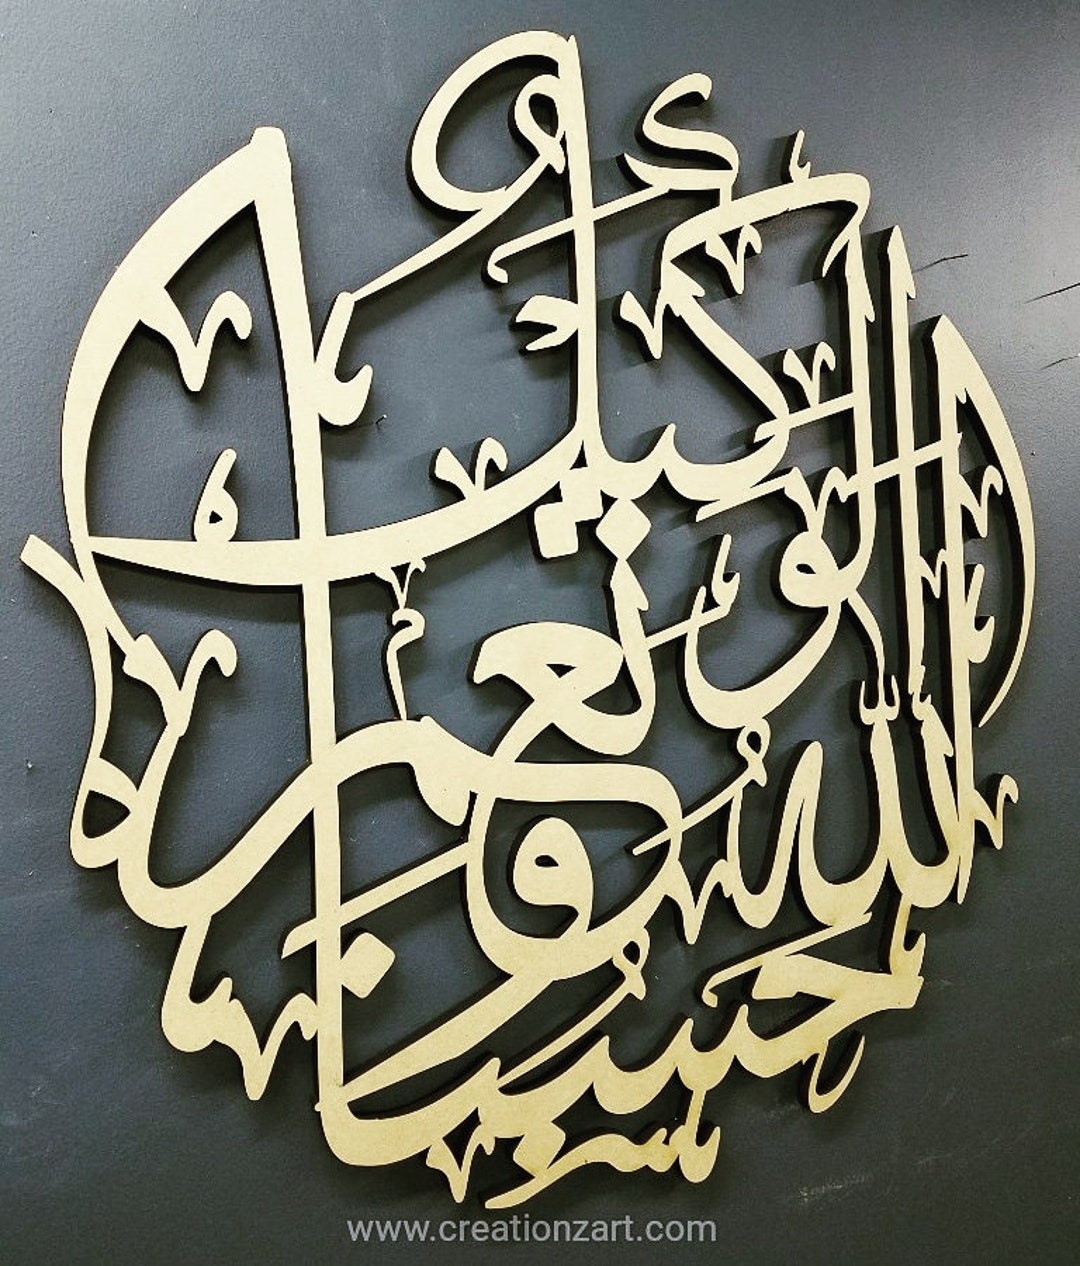 حسبنا الله ونعم الوكيل
www.creationzart.com